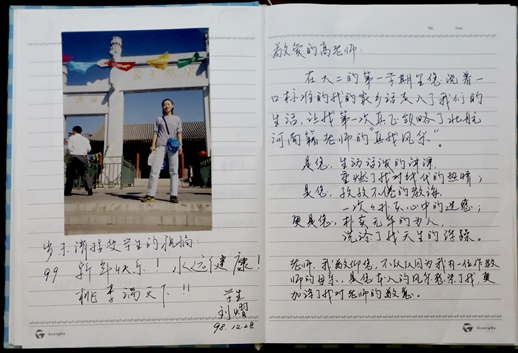 岁末请接受学生的祝福:
99 新年快乐! 永远健康!
桃李满天下!!
学生
98.12.28
敬爱的高老师:
在大二的第一学期里您说着一
口标准的我的家乡话走入了我们的
生活,让我第一次真正领略了
河南籍老师的"真我风采"。
是您,生动活泼的演讲
重燃了我对线代的热情;
是您,孜孜不倦的教诲
一次次扑灭心中的迷惑;
更是您,朴实无华的为人
老师,我敬仰您,不仅仅因为我有一位作教
师的母亲,是您
加深了我对老师的敬意。